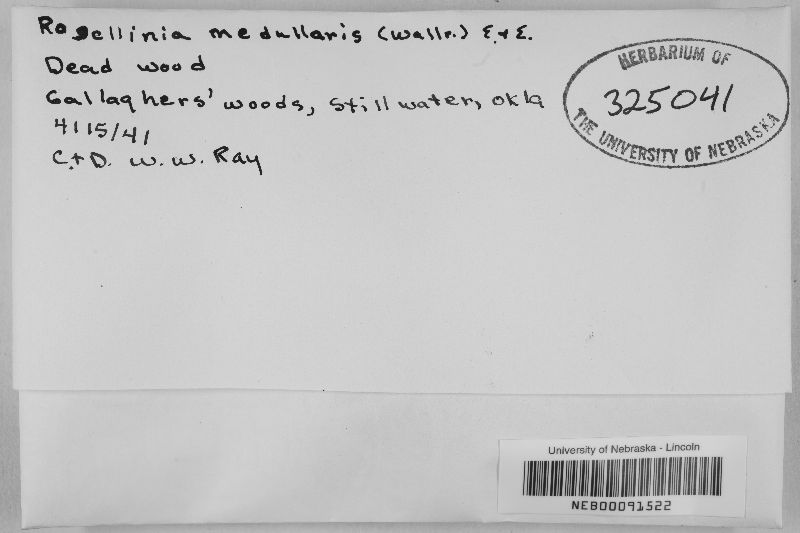 Rosellinia medullaris (Wallr.) E. & E.
Dead wood
Gallaghers' woods, Stillwater, Okla
4/15/41
C. & D. W. W. Ray
HERBARIUM OF
325041
THE UNIVERSITY OF NEBRASKA
University of Nebraska - Lincoln
NEB00091522